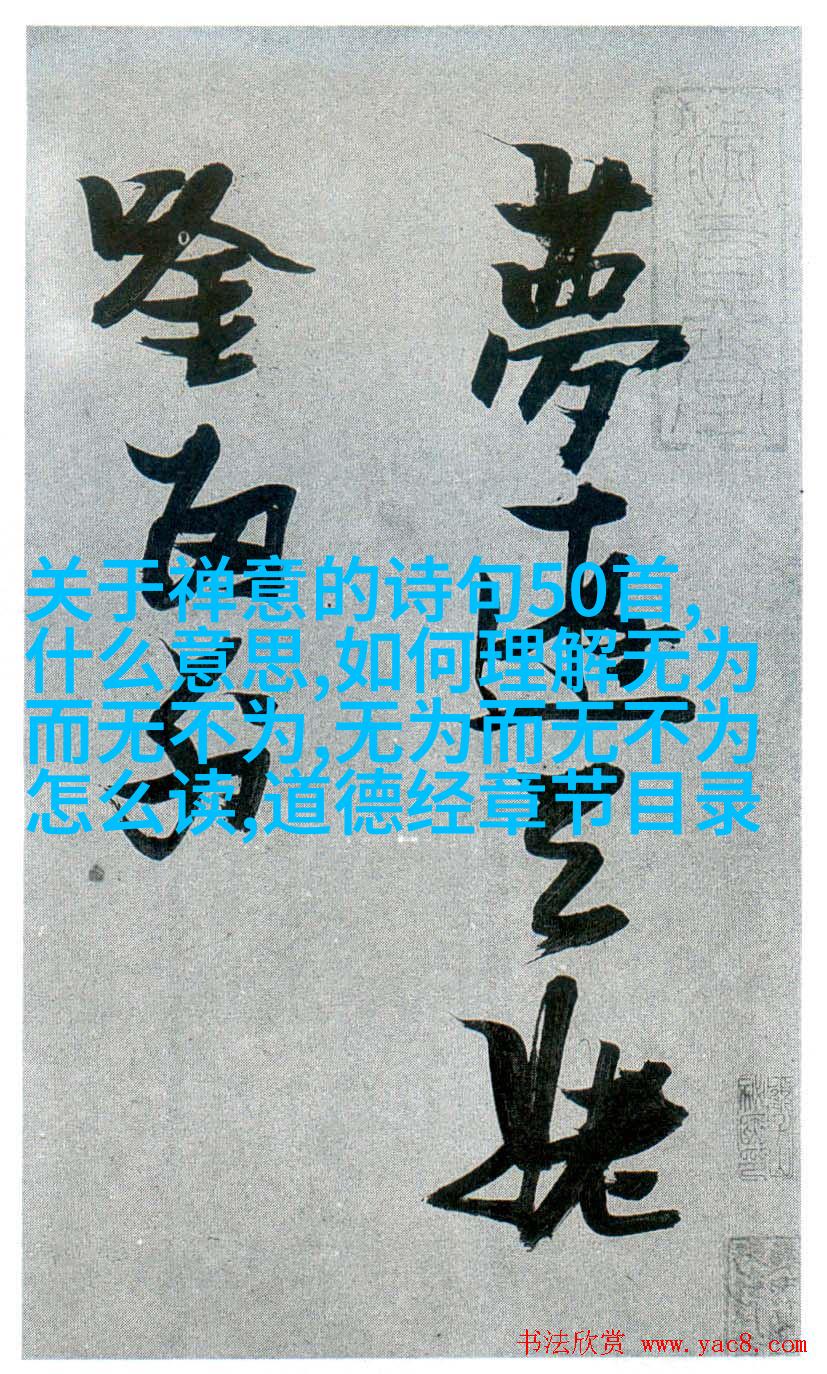 夢遊天姥
唫留别
关于禅意的诗句50首,
什么意思,如何理解无为
而无不为,无为而无不为
怎么读,道德经章节目录
书法欣赏 www.yac8.com